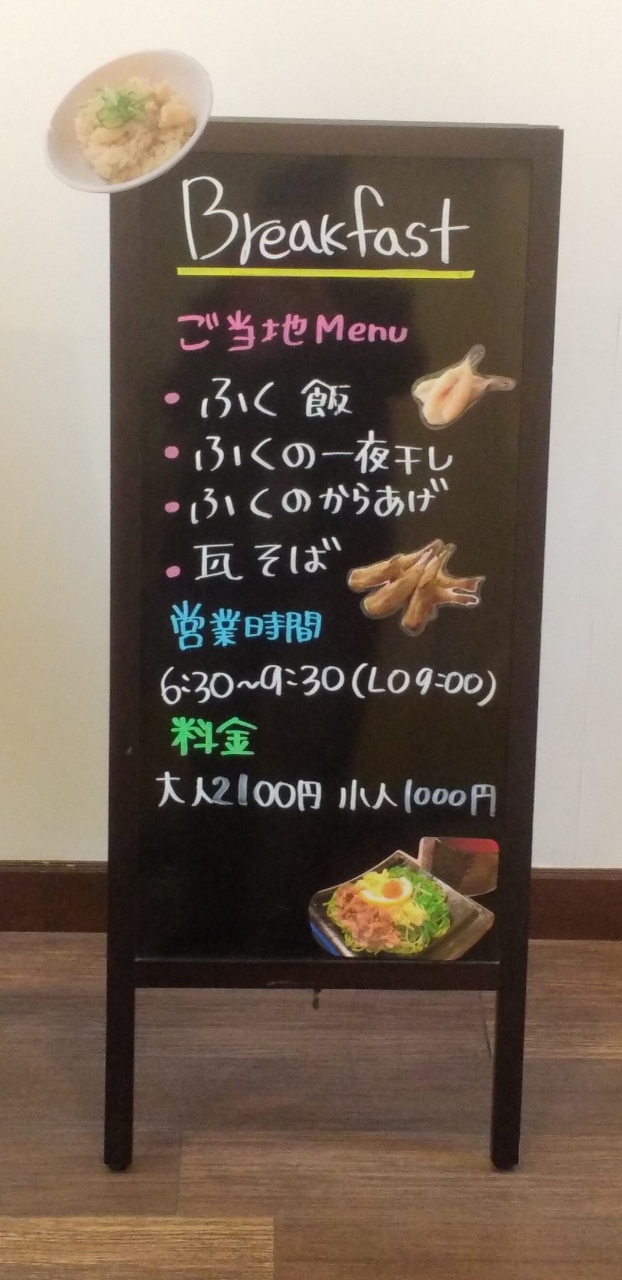 Breakfast
ご当地Menu
・ふく飯
・ふくの一夜干し
・ふくのからあげ
・瓦そば
営業時間
6:30~9:30(LO9:00)
料金
大人2100円 小人1000円